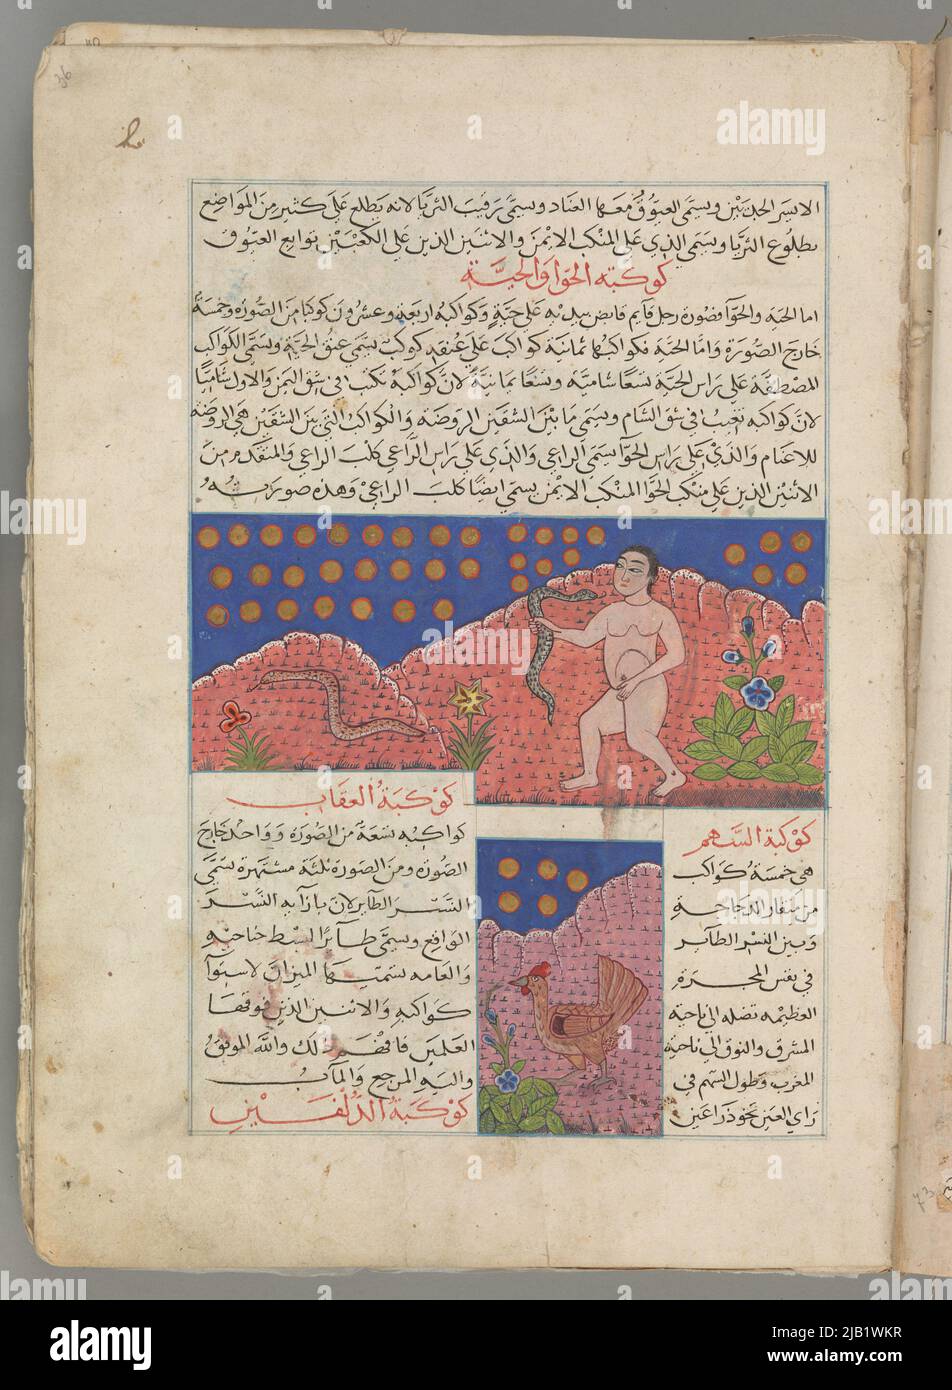 الايسر الجديين ويسمى العيوق معها العناد ويسمى رقيب الثريا لانه يطلع على كثير من المواضع
بطلوع الثريا ويسمى الذي على المنكب الايمن والاثنين الذين على الكعبين توابع العيوق
كوكبة الحوا والحية
اما الحية والحوا فصورة رجل قايم قابض بيديه على حية وكواكبه اربعة وعشرون كوكبا من الصورة وخمسة
خارج الصورة واما الحية فكواكبها ثمانية كواكب على عنقه كوكب يسمى عنق الحية ويسمى الكواكب
المصطفة على راس الحية نسقا شامية ونسقا يمانية لان كواكبه تكتب في شق اليمن والاول شاميا
لان كواكبه تغيب في شق الشام ويسمى ما بين الشقين الروضة والكواكب التي بين الشقين هي الروضة
للاغنام والذي على راس الحوا يسمى الراعي والذي على راس الراعي كلب الراعي والمتقدم من
الاثنين الذين على منكب الحوا المنكب الايمن يسمى ايضا كلب الراعي وهذه صورته
كوكبة السهم
هي خمسة كواكب
من منقار الدجاجة
وبين النسر الطاير
في نفس المجرة
العظيمه نصله الى ناحية
المشرق والفوق الى ناحية
المغرب وطول السهم في
راي العين نحو ذراعين
كوكبة العقاب
كواكبه تسعة من الصورة وواحد خارج
الصورة ومن الصورة ثلثة مشتهرة تسمى
النسر الطاير لان بازايه النسر
الواقع ويسمى طايرا لبسط جناحيه
والعامه تسمتها الميزان لاستوا
كواكبه والاثنين الذين فوقها
العلمين فافهم ذلك والله الموفق
واليه المرجع والمآب
كوكبة الدلفين
36
73
alamy
2JB1WKR
www.alamy.com